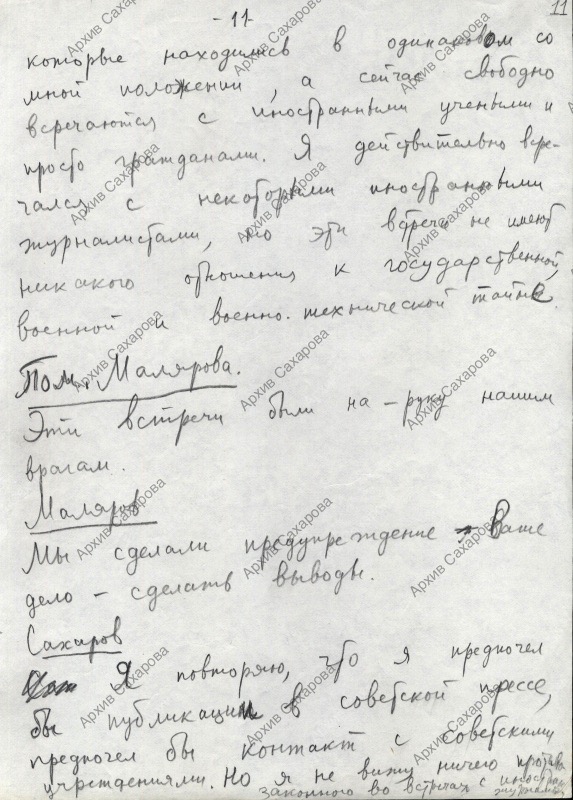 -11-
11
которые находились в одинаковом со
мной положении, а сейчас свободно
встречаются с иностранными учеными и
просто гражданами. Я действительно встре-
чался с некоторыми иностранными
журналистами, но эти встречи не имеют
никакого отношения к государственной,
военной и военно-технической тайне.
Пом. Малярова.
Эти встречи были на-руку нашим
врагам.
Маляров
Мы сделали предупреждение - Ваше
дело – сделать выводы.
Сахаров
Я повторяю, что я предпочел
бы публикации в советской прессе,
предпочел бы контакт с Советскими
учреждениями. Но я не вижу ничего противо
законного во встречах с иностран.
журналистами
Архив Сахарова